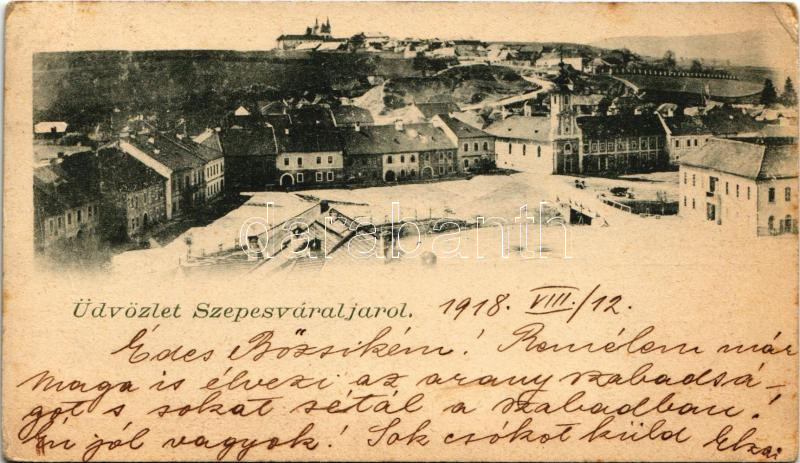 databanth
Üdvözlet Szepesváraljarol. 1918. VIII./12.
Édes Bözsikém! Remélem már
maga is élvezi az arany szabadsá-
got s sokat sétál a szabadban!
Én jól vagyok! Sok csókot küld Elza